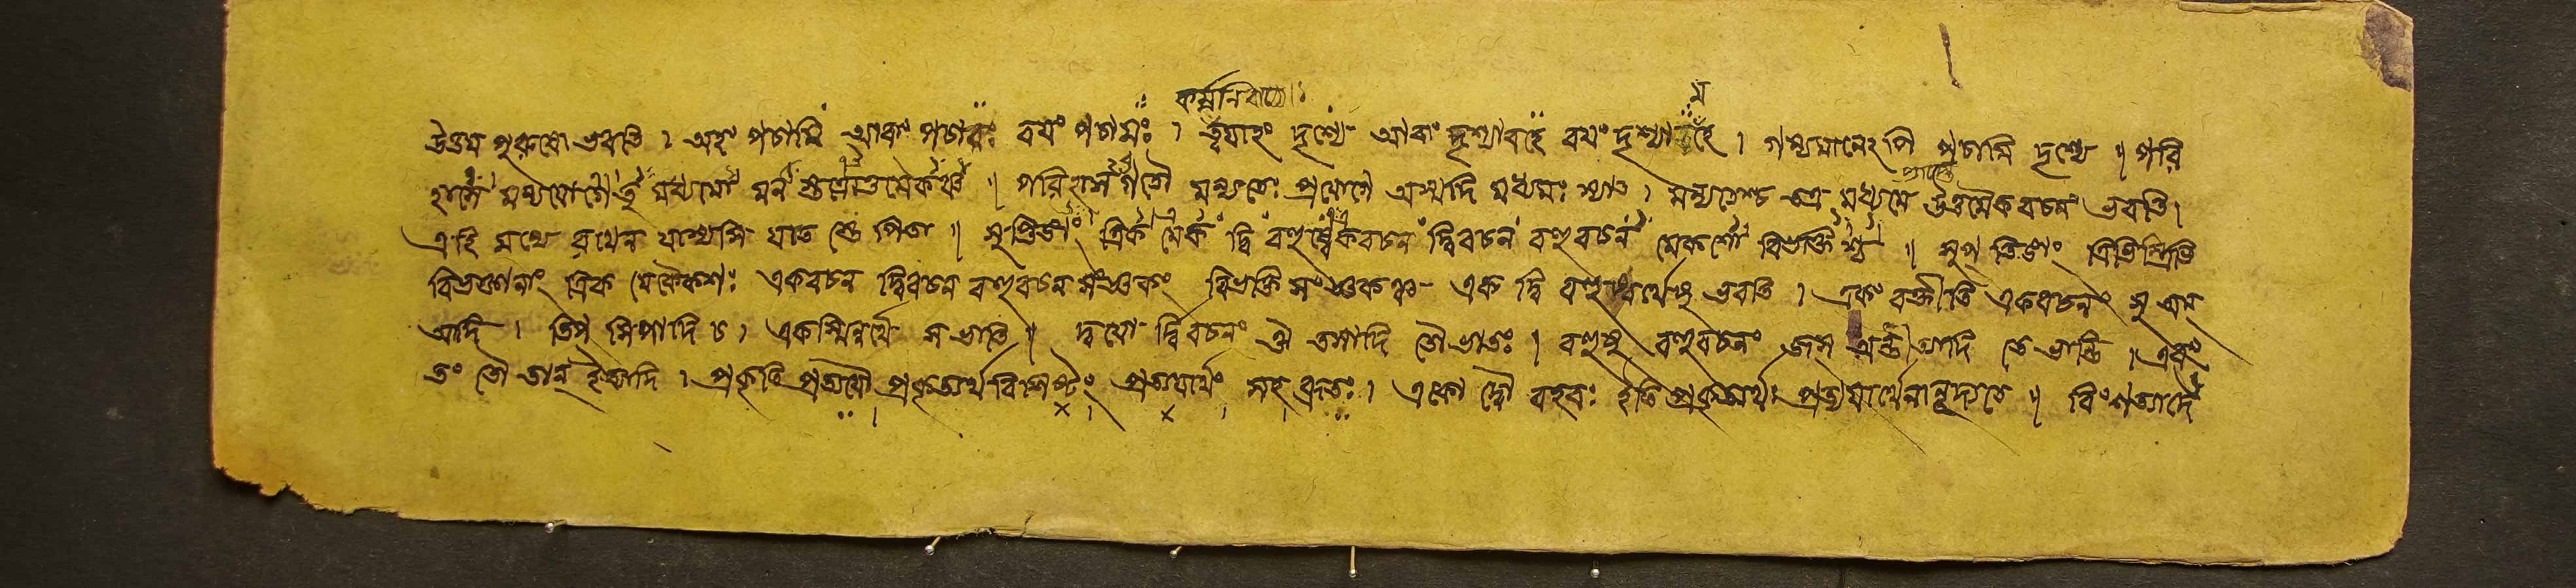 কর্ম্মনি বাচ্যে।
ম
উত্তম পুরুষো ভবতি। অহং পচামি আবাং পচাবঃ বয়ং পচামঃ। ত্বয়াহং দৃশ্যে আবাং দৃশ্যাবহে বয়ং দৃশ্যামহে। গম্যমানেঽপি পচামি দৃশ্যে॥ পরি
হাসে মন্যযোগে তু মধ্যমো মন শ্চোত্তমেকঞ্চ॥ পরিহাস গতৌ মন্যতেঃ প্রযোগে অস্মদি মধ্যমঃ স্যাৎ। মন্যতেশ্চ মধ্যমে উত্তমৈকবচনং ভবতি।
এহি মন্যে রথেন যাস্যসি যাত স্তে পিতা॥ সুপ্তিঙাং ত্রিক মেকং দ্বি বহুষ্বেকবচন দ্বিবচন বহুবচন মেকশো বিভক্তি শ্চ॥ সুপ্ তিঙাং ত্রিভি স্ত্রিভি
বিভক্তানাং ত্রিক মেকৈকশঃ একবচন দ্বিবচন বহুবচন সংজ্ঞকং বিভক্তি সংজ্ঞকঞ্চ এক দ্বি বহুষ্বর্থেষু ভবতি। একং বক্তীতি একবচনং সু অম্
আদি। তিপ্ সিপাদি চ। একস্মিন্নর্থে স ভাতি॥ দ্বয়ো দ্বিবচনং ঔ তসাদি তৌ ভাতঃ। বহুষু বহুবচনং জস্ অন্তি আদি তে ভান্তি। এবং
তং তৌ তান্ ইত্যাদি। প্রকৃতি প্রত্যয়ৌ প্রকৃত্যর্থ বিশিষ্টং প্রত্যয়ার্থং সহ ব্রূতঃ। একো দ্বৌ বহবঃ ইতি প্রকৃত্যর্থঃ প্রত্যয়ার্থেনানূদ্যতে॥ বিংশত্যাদে